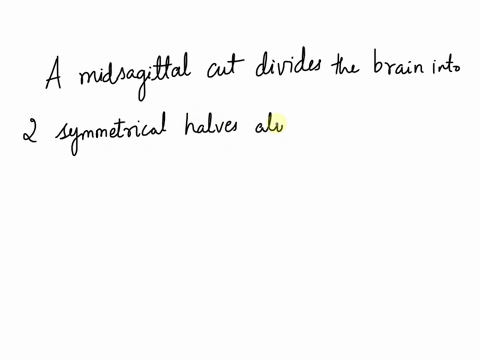 A midsagittal cut divides the brain into
2 symmetrical halves